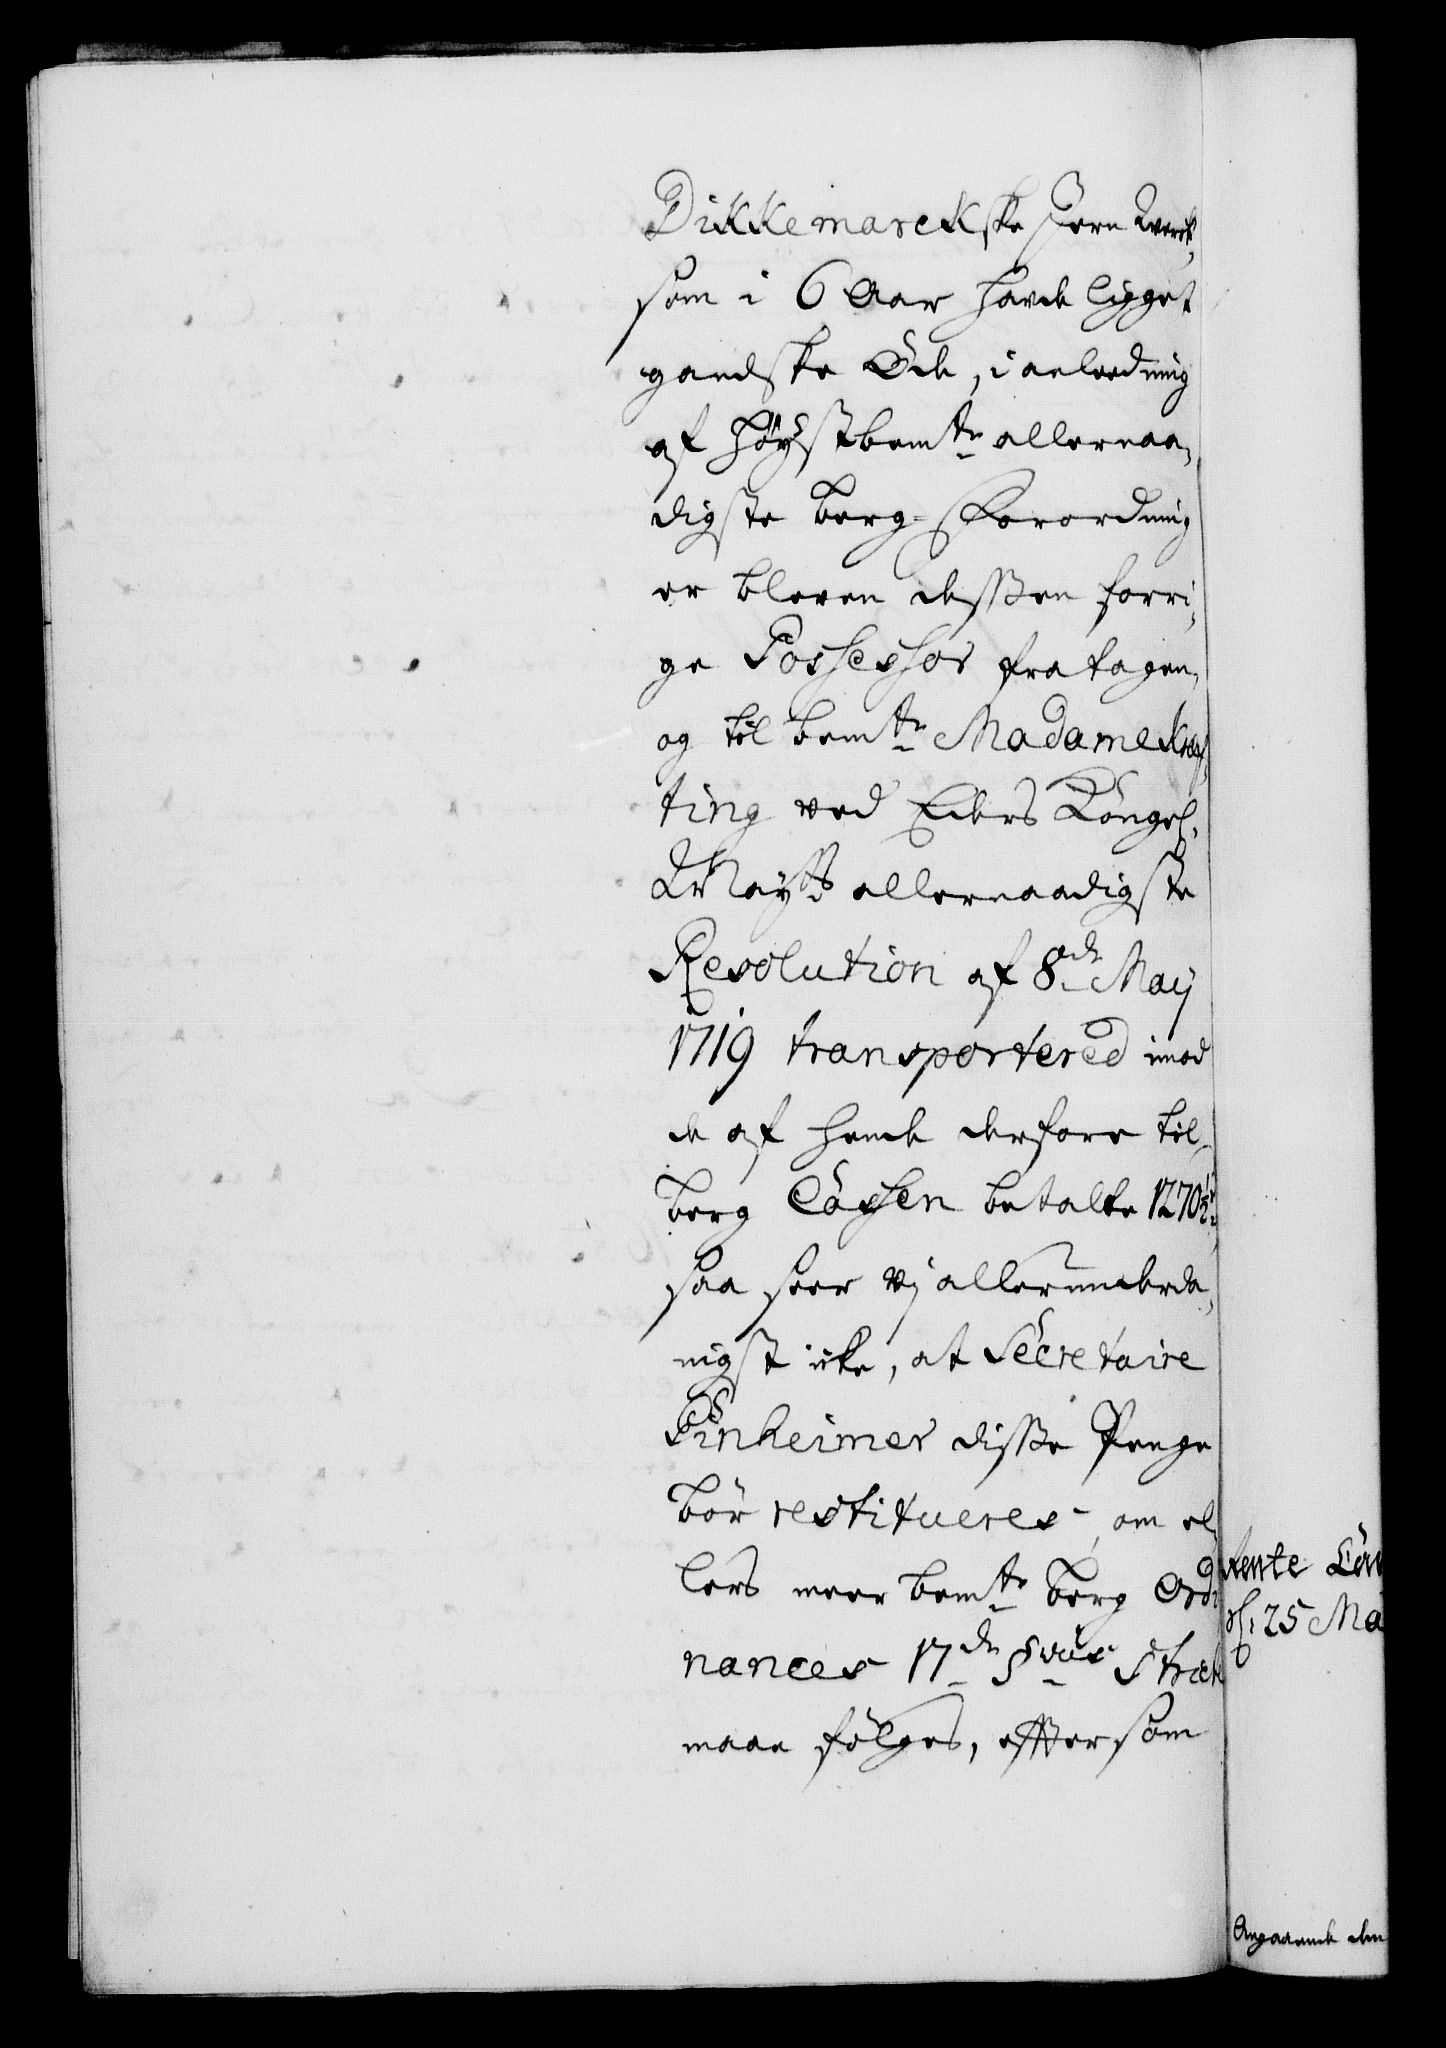 Dikkemarckske Jern Werk,
som i 6 Aar hafde ligget
gandske Öde, i anledning
af höystbemte allernaa,
digste Berg-Forordning
er bleven dessen forri,
ge Possessor fratagen,
og til bemte Madame Kref,
ting ved Eders Kongel.
Mayts allernaadigste
Resolution af 8de Maij
1719 transportered imod
de af hende derfore til
Berg Cassen betalte 1270½
saa seer vj allerunderda,
nigst icke, at Secretaire
Pinheimer disse Penge
bör restitueres, om el,
lers meer bemte Berg Ordi
nances 17de §vus
maae fölges, efftersom
Rente
25 Ma
Angaaende den